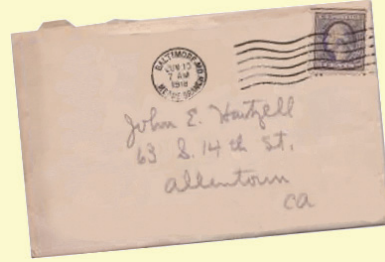 BALTIMORE, MD.
JUN 13
7 AM
1918
MEADE BRANCH
John E. Hartzell
63 S. 14 th St.
allentown
Ca